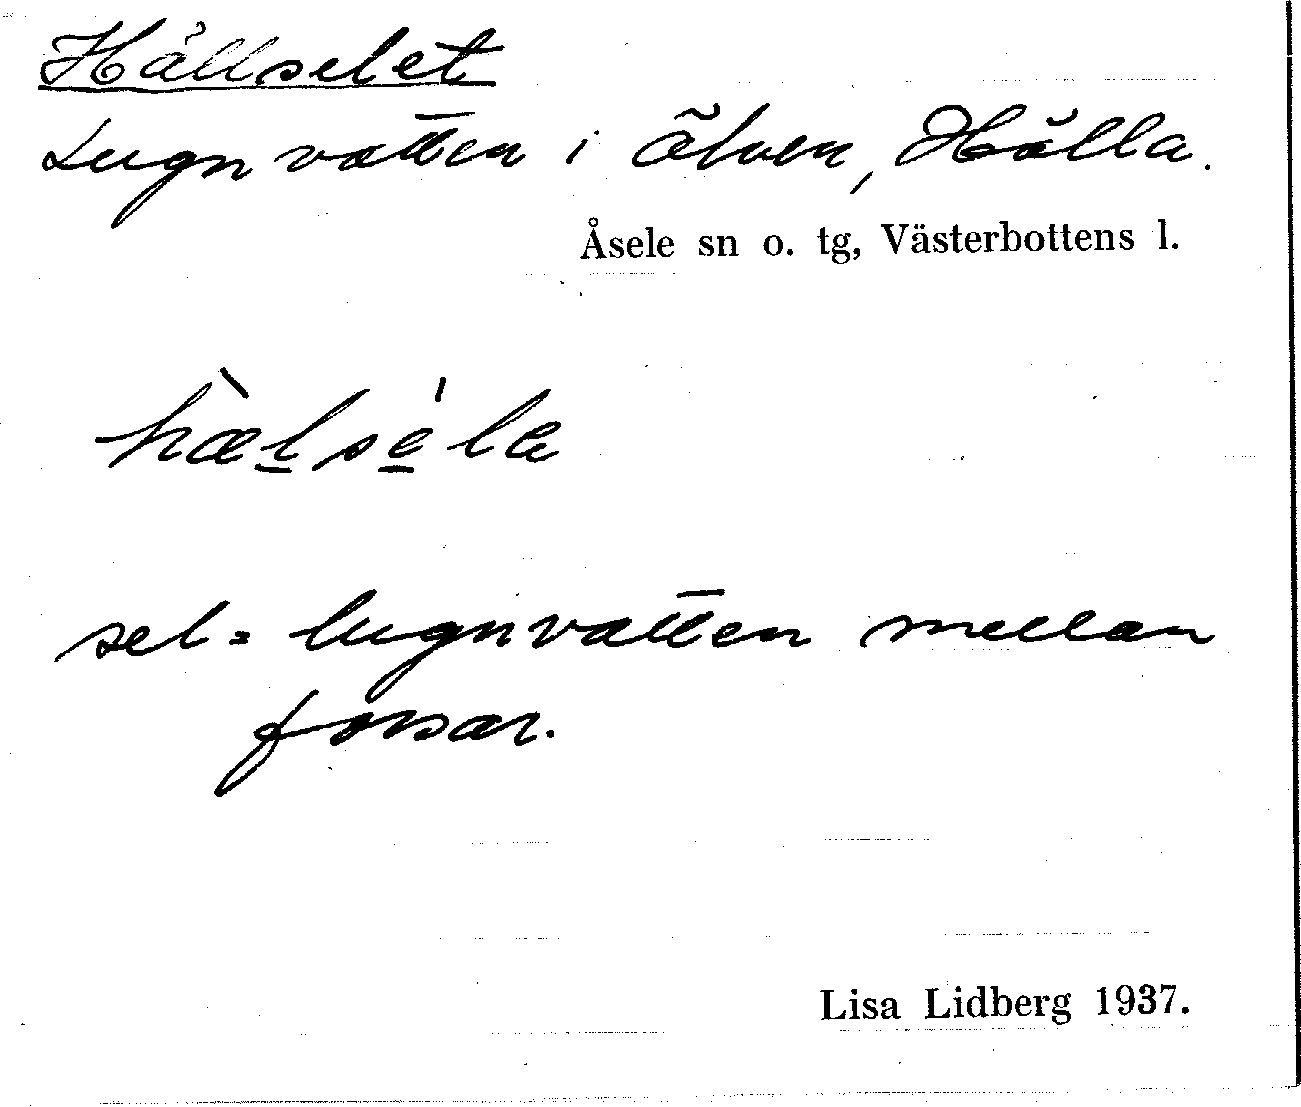 Hällselet
Lugnvatten i älven, Hälla.
Åsele sn o. tg, Västerbottens l.
hæ̀lse̍la
sel = lugnvatten mellan
forsar.
Lisa Lidberg 1937.